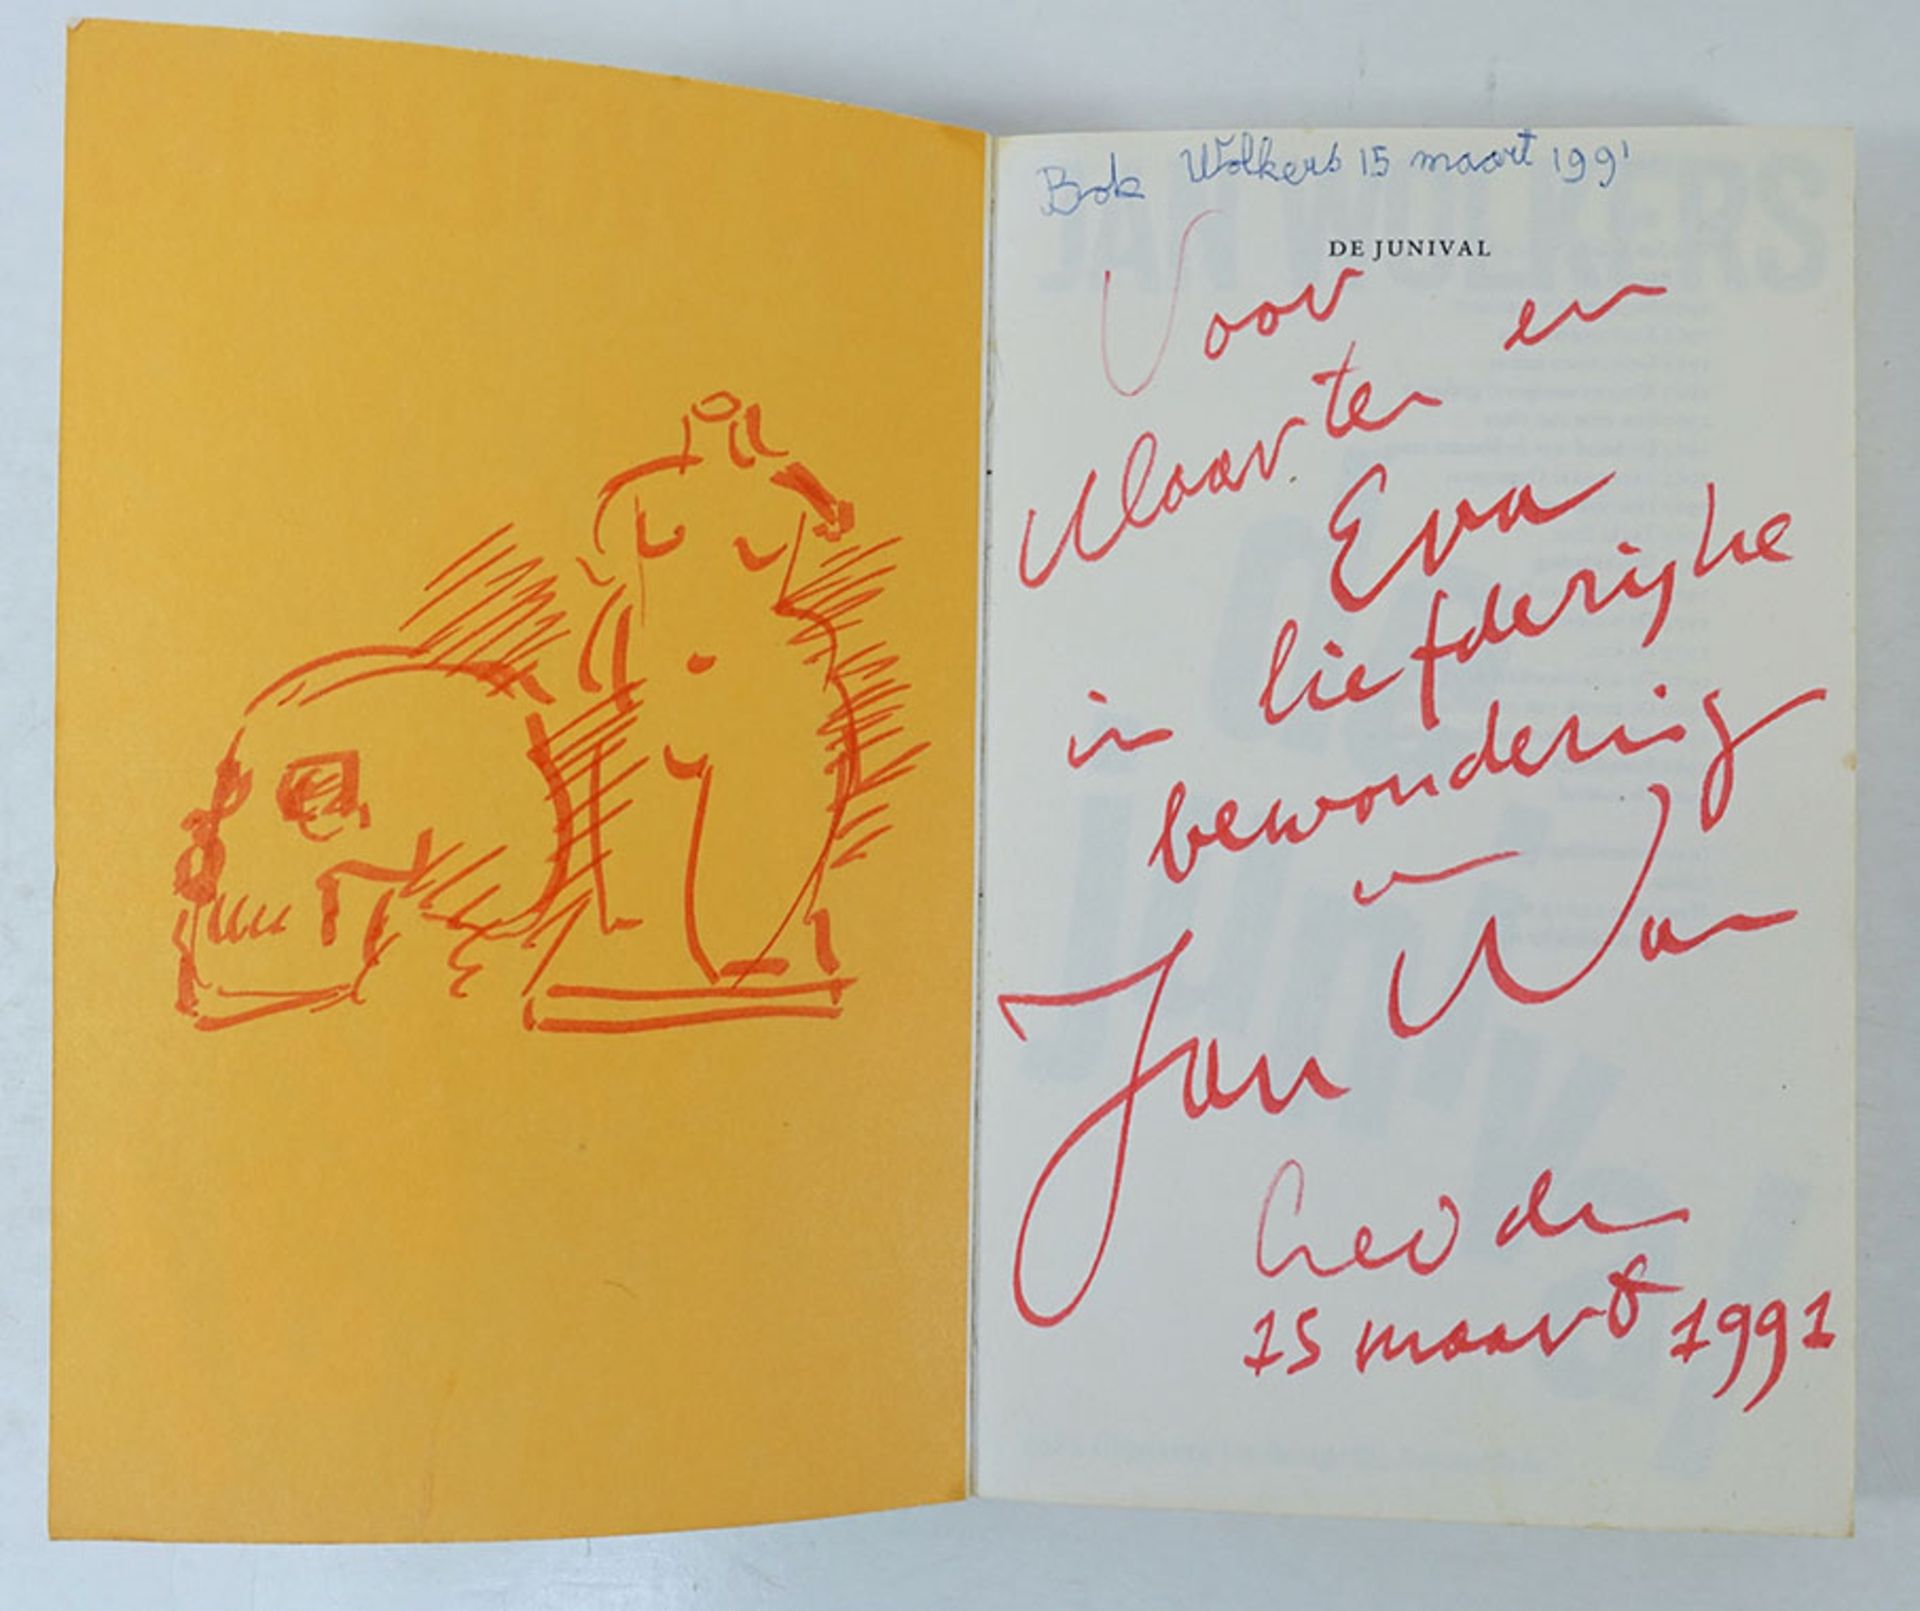 Bok Wolkers 15 maart 1991
DE JUNIVAL
Voor en
Maarten
Eva
in liefderijke
bewondering
van
Jan W
15 maart 1991